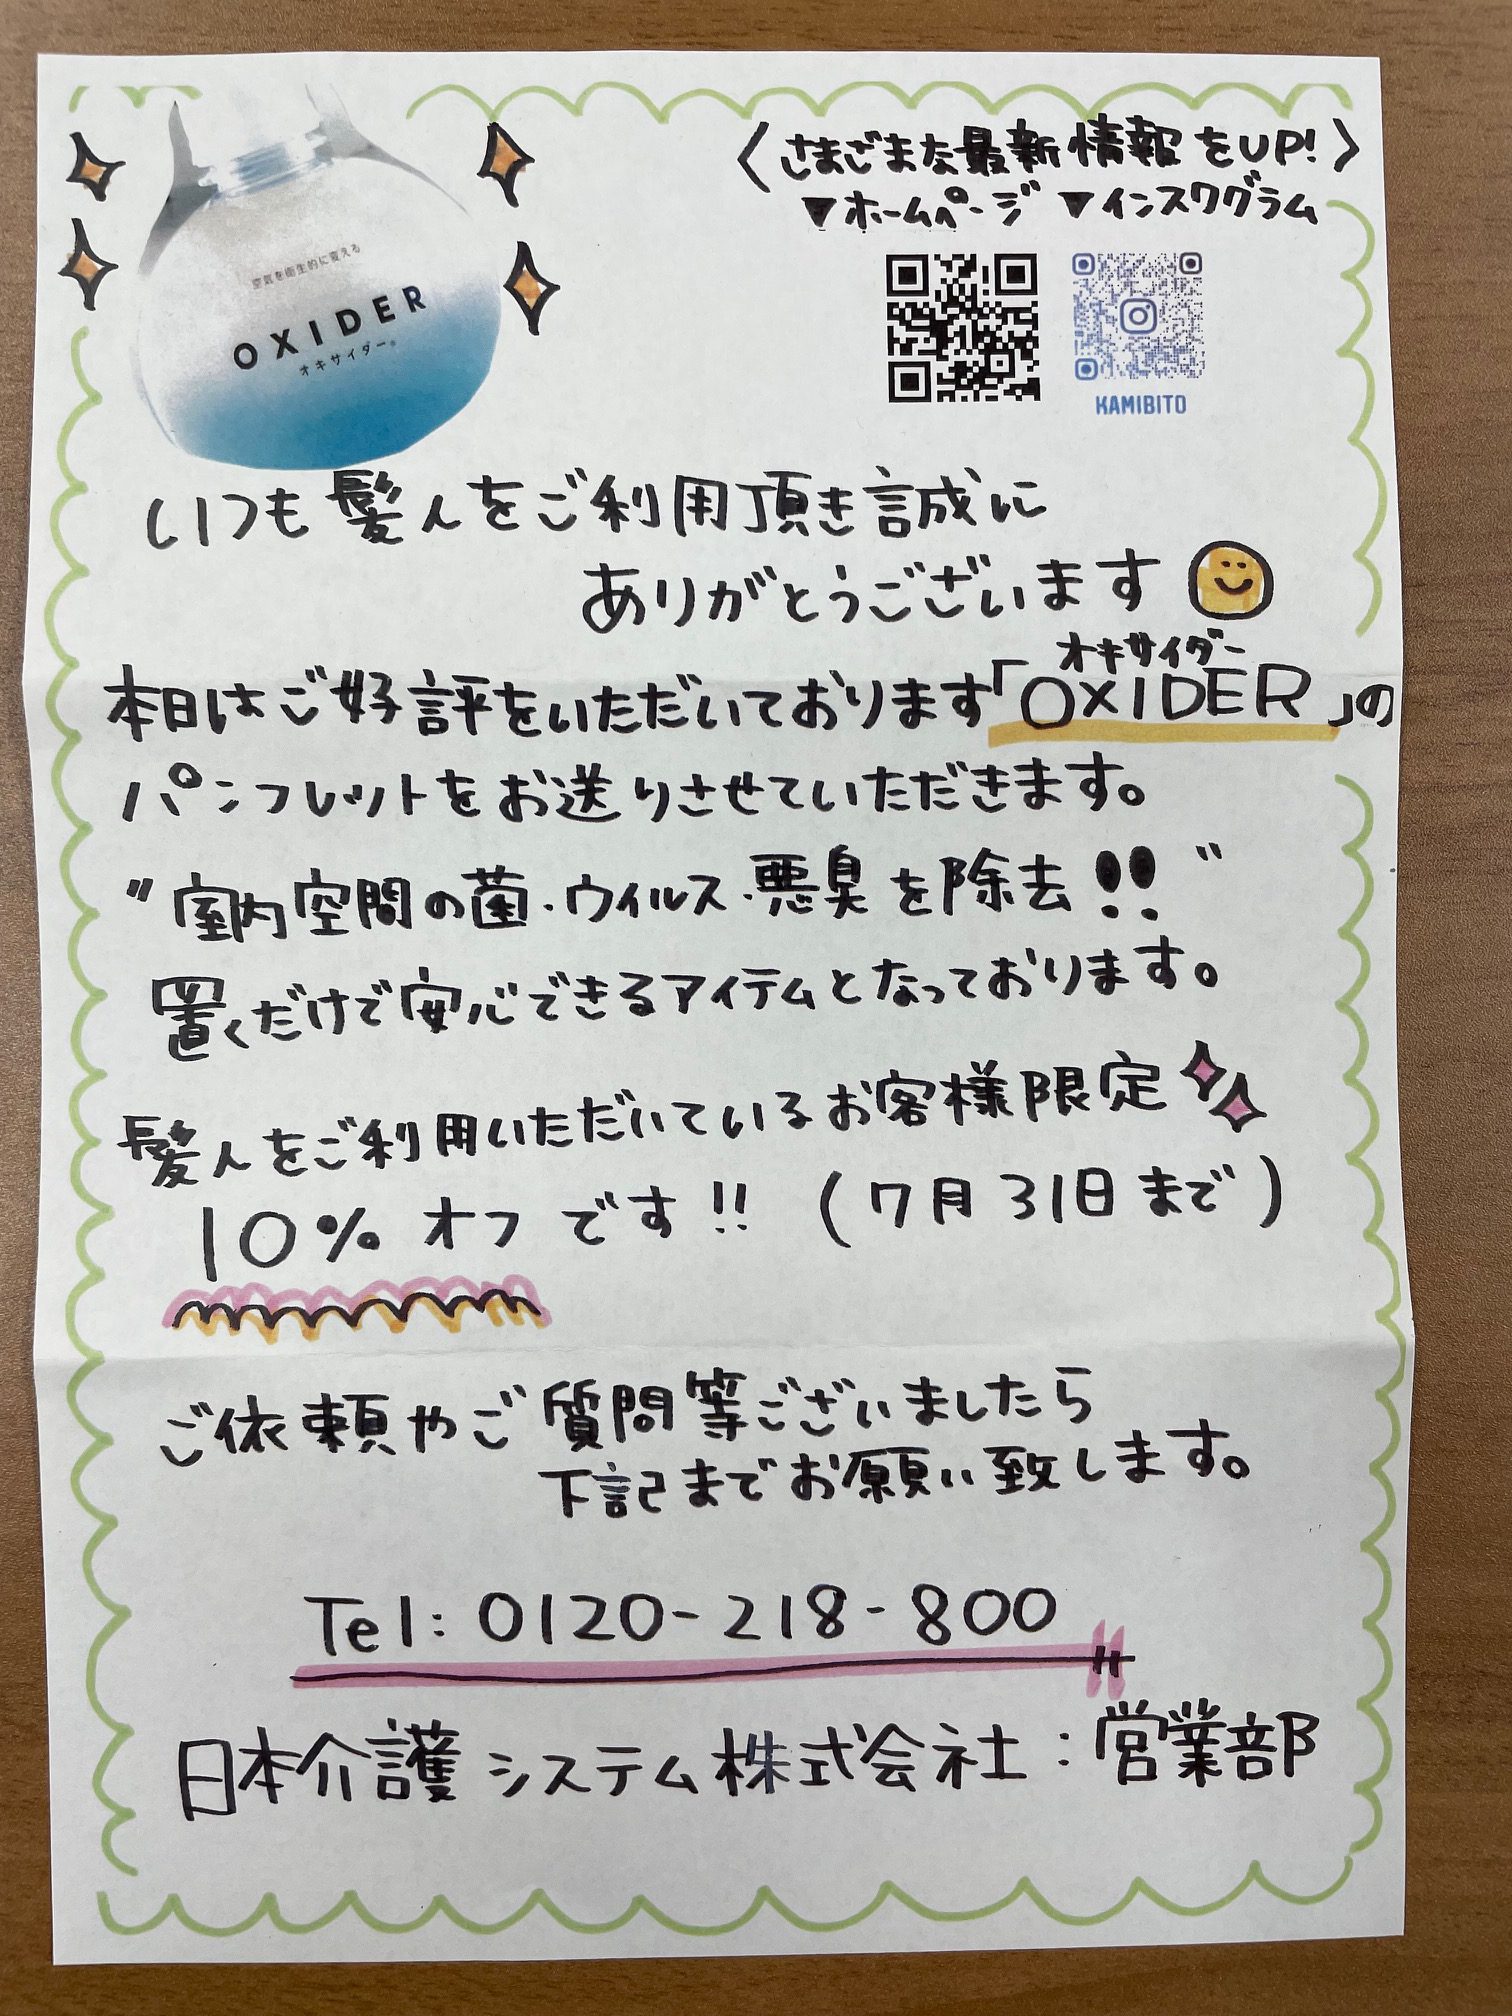 空気を衛生的に変える
OXIDER
オキサイダー。
〈さまざまな最新情報をUP!〉
▼ホームページ ▼インスタグラム
KAMIBITO
いつも髪人をご利用頂き誠に
ありがとうございます
オキサイダー
本日はご好評をいただいております「OXIDER」の
パンフレットをお送りさせていただきます。
"室内空間の菌・ウイルス・悪臭を除去!!"
置くだけで安心できるアイテムとなっております。
髪人をご利用いただいているお客様限定
10%オフです!! (7月31日まで)
ご依頼やご質問等ございましたら
下記までお願い致します。
Tel:0120-218-800
日本介護システム株式会社:営業部